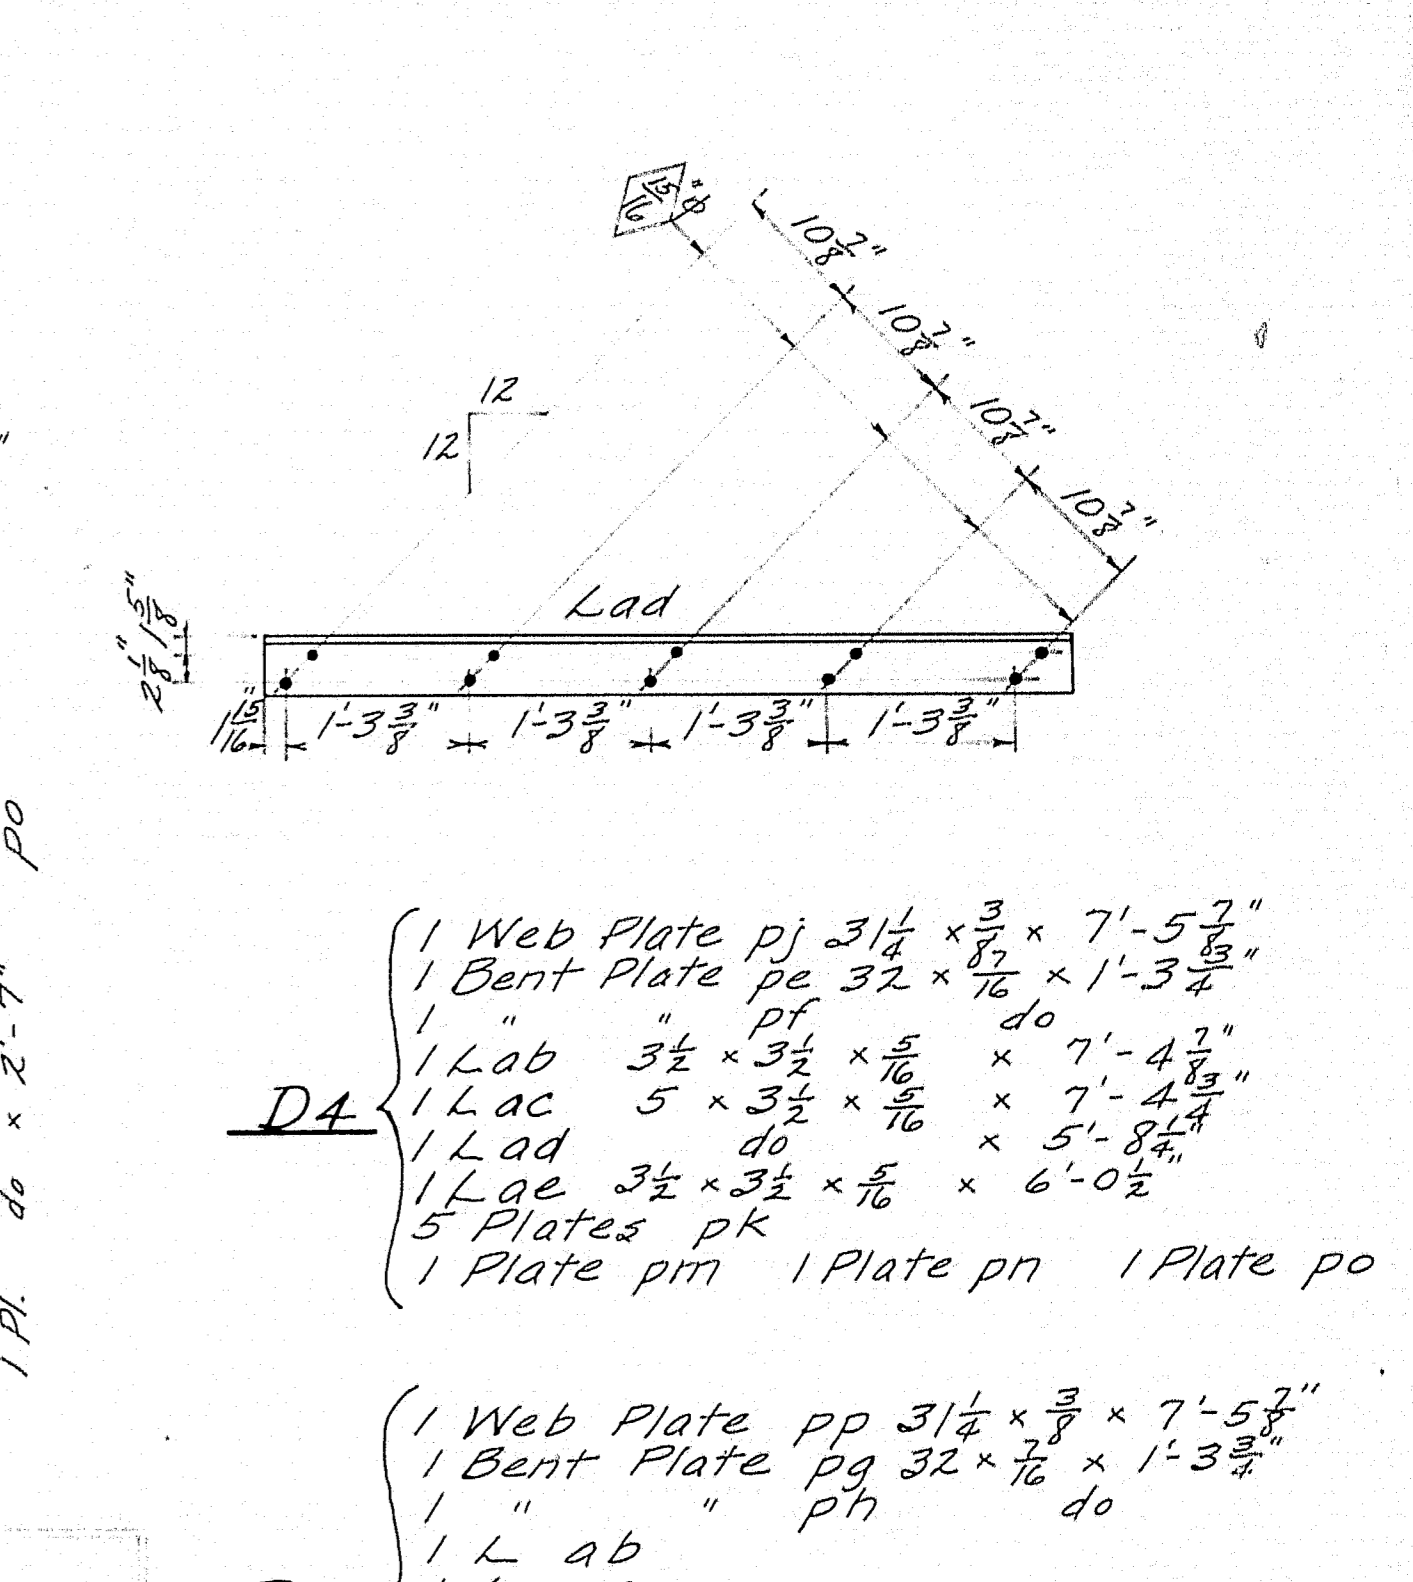 15/16 "ø
10 7/8"
10 7/8"
10 7/8"
10 7/8"
12
12
Lad
2 1/8" 1 5/8"
1 15/16" 1'-3 3/8" 1'-3 3/8" 1'-3 3/8" 1'-3 3/8"
1 Pl. do × 2'-7" po
D4
1 Web Plate pj 31 1/4 × 3/8 × 7'-5 7/8"
1 Bent Plate pe 32 × 7/16 × 1'-3 3/4"
1 " " pf do
1 Lab 3 1/2 × 3 1/2 × 5/16 × 7'-4 7/8"
1 Lac 5 × 3 1/2 × 5/16 × 7'-4 3/4"
1 Lad do × 5'-8 1/4"
1 Lae 3 1/2 × 3 1/2 × 5/16 × 6'-0 1/2"
5 Plates pk
1 Plate pm 1 Plate pn 1 Plate po
1 Web Plate pp 31 1/4 × 3/8 × 7'-5 7/8"
1 Bent Plate pg 32 × 7/16 × 1'-3 3/4"
1 " " ph do
1 L ab